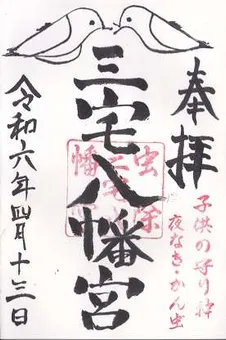 奉拝
子供の守り神
夜なき・かん虫
三宅八幡宮
虫除
八幡
令和六年四月十三日